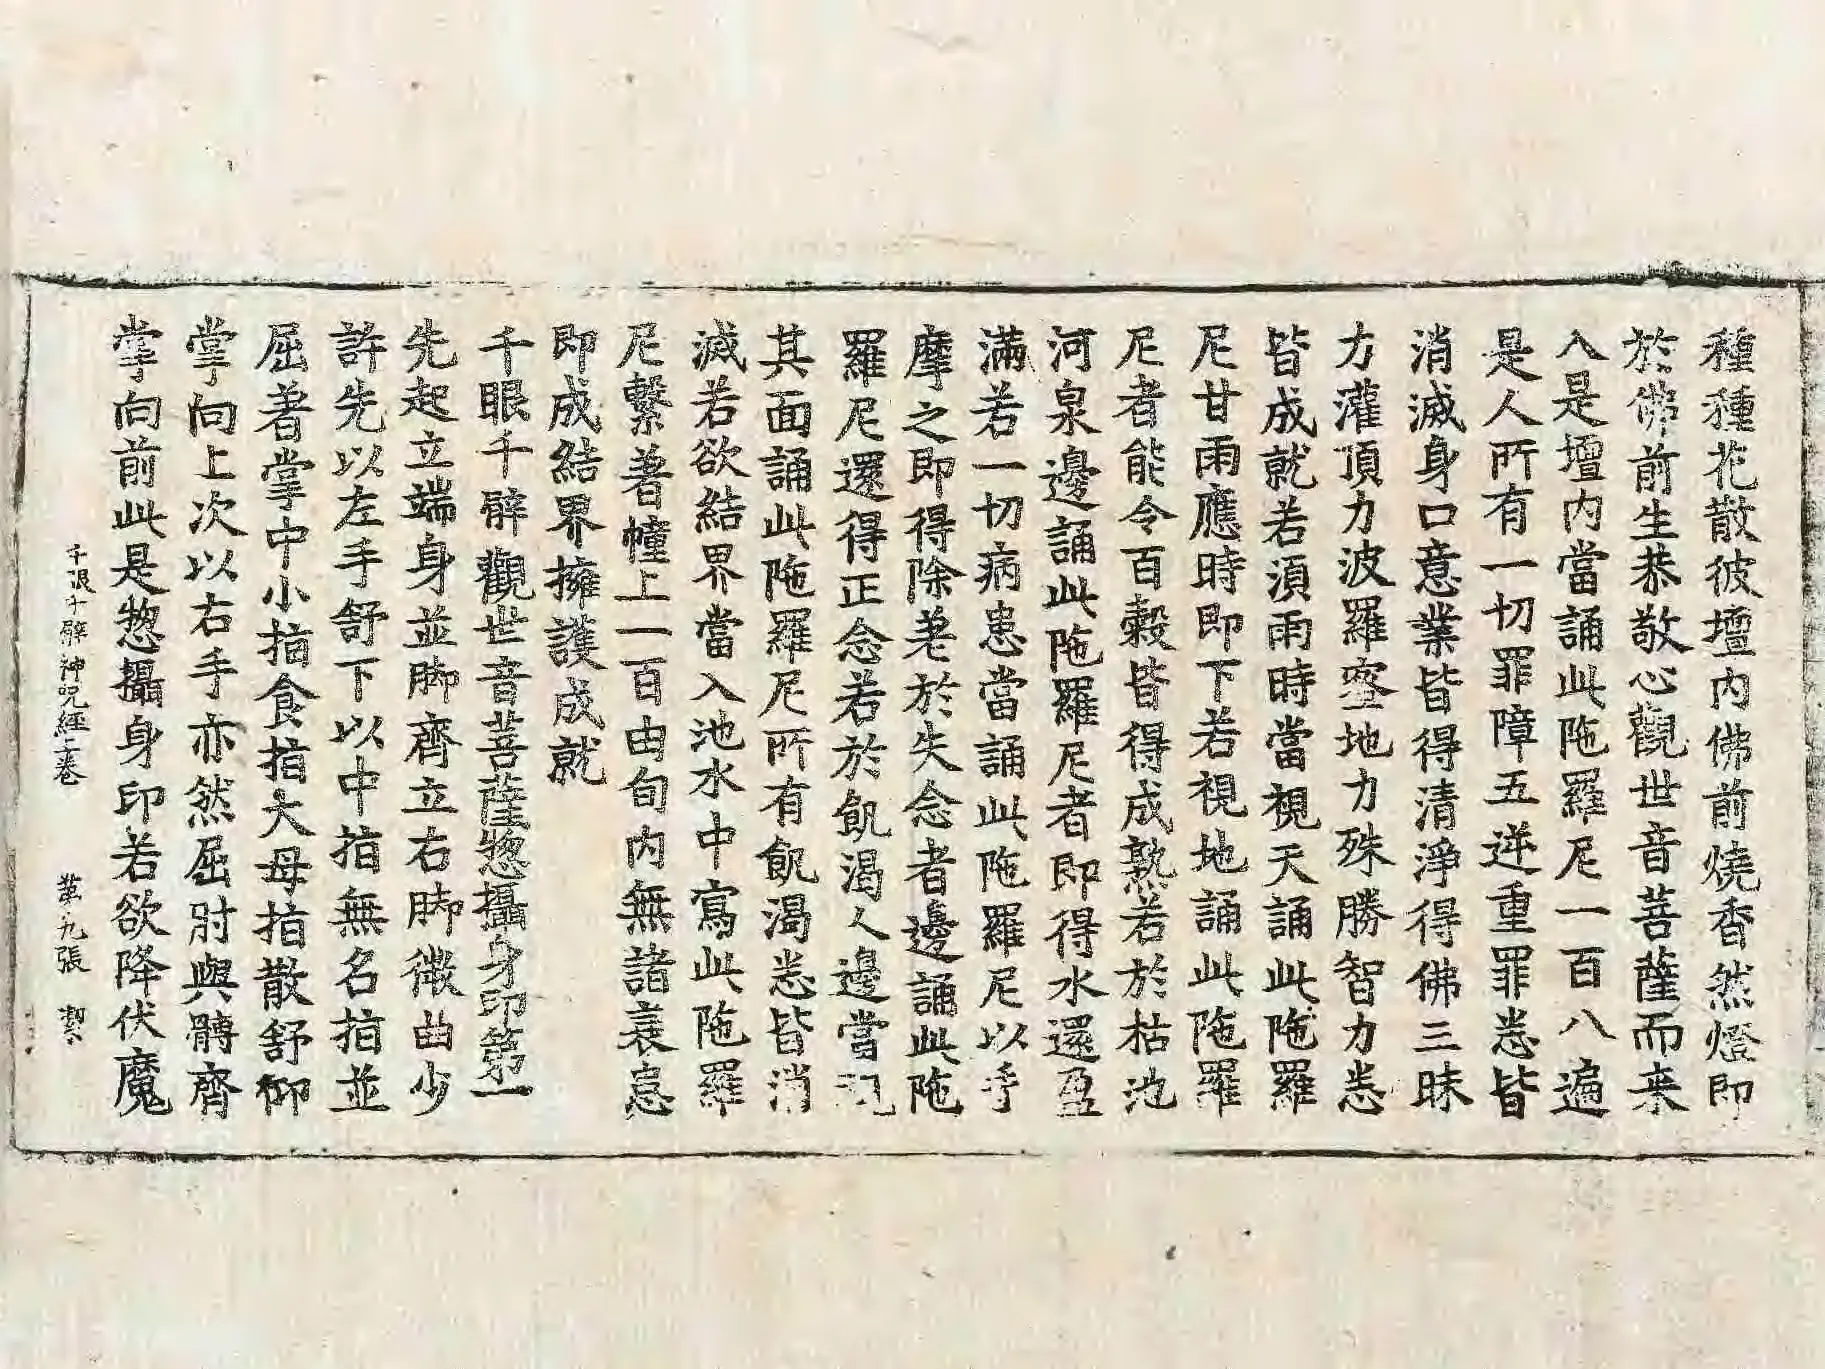 種種花散彼壇內佛前燒香然燈即
於佛前生恭敬心觀世音菩薩而来
入是壇內當誦此陁羅尼一百八遍
是人所有一切罪障五逆重罪悉皆
消滅身口意業皆得清淨得佛三昧
力灌頂力波羅蜜地力殊勝智力悉
皆成就若須雨時當視天誦此陁羅
尼甘雨應時即下若視地誦此陁羅
尼者能令百穀皆得成熟若於枯池
河泉邊誦此陁羅尼者即得水還盈
滿若一切病患當誦此陁羅尼以手
摩之即得除差於失念者邊誦此陁
羅尼還得正念若於飢渴人邊當現
其面誦此陁羅尼所有飢渴悉皆消
滅若欲結界當入池水中寫此陁羅
尼繫著幢上一百由旬內無諸衰患
即成結界擁護成就
千眼千臂觀世音菩薩惣攝身印第一
先起立端身並脚齊立右脚微曲少
許先以左手舒下以中指無名指並
屈著掌中小指食指大母指散舒仰
掌向上次以右手亦然屈肘與髆齊
掌向前此是惣攝身印若欲降伏魔
千眼千臂神呪經上卷 第九張